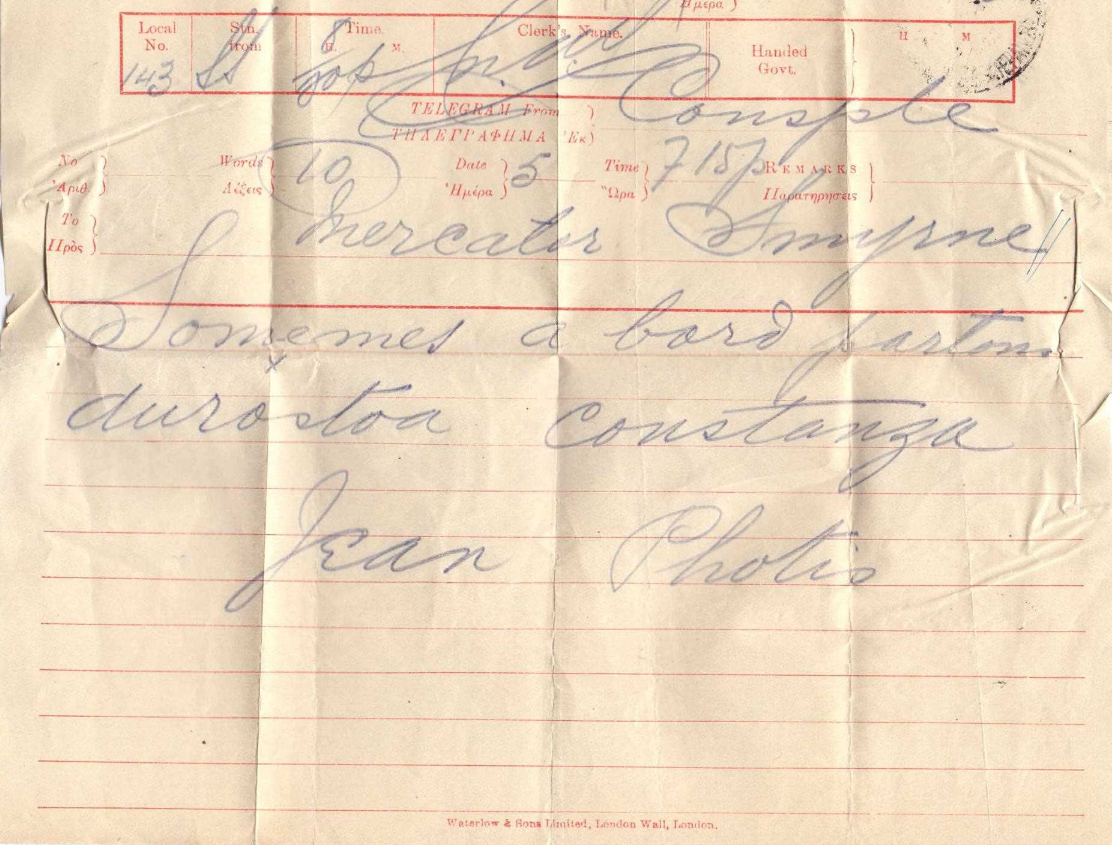 Ἡμέρα
Local No. Stn. from Time. H. M. Clerk's Name. Handed Govt. H M
143 St 8
TELEGRAM From Consple
ΤΗΛΕΓΡΑΦΗΜΑ Ἐκ
No Words 10 Date 5 Time 7 15p REMARKS
Ἀριθ. Λέξεις Ἡμέρα Ὥρα Παρατηρησεις
To Mercator Smyrne
Πρὸς
Somemes a bord partons
durostoa constanza
Jean Photis
Waterlow & Sons Limited, London Wall, London.